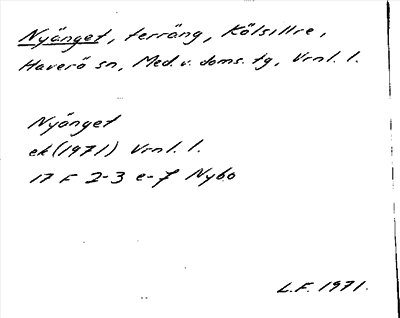 Nyänget, terräng, Kölsillre,
Haverö sn, Med. v. doms. tg, Vrnl. l.
Nyänget
ek (1971) Vrnl. l.
17 F 2-3 e-f Nybo
L.F. 1971.